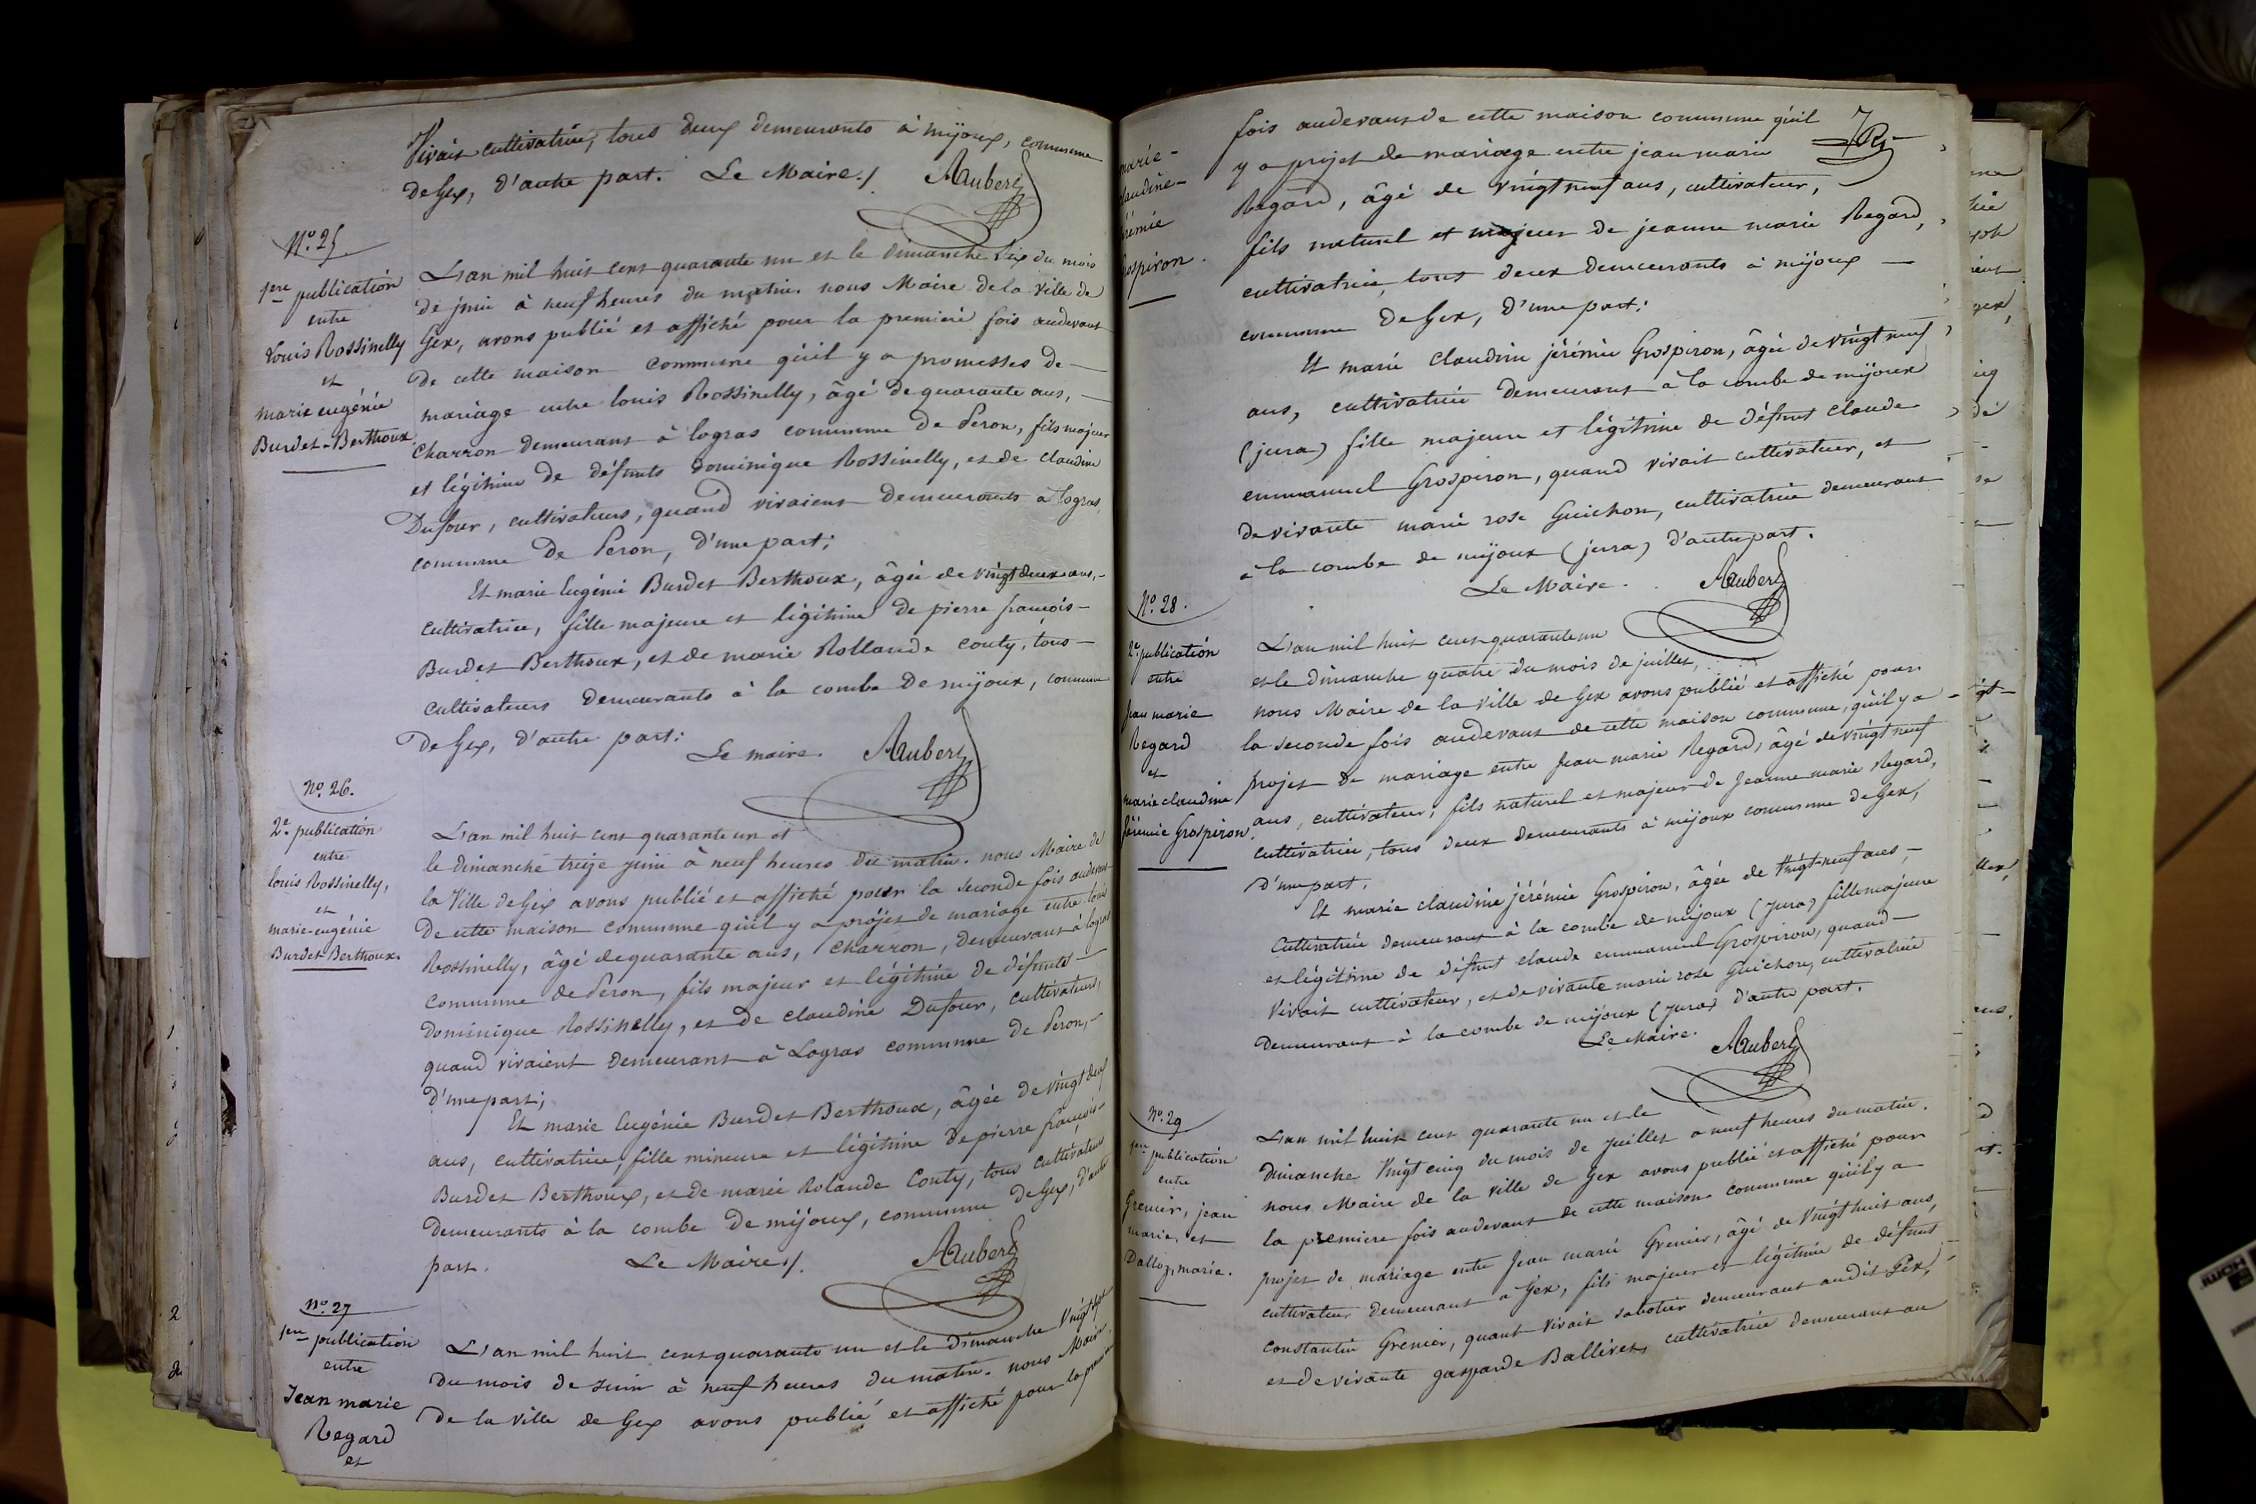 Vivait cultivatrice, tous deux demeurants à mijoux, commune
de Gex, d'autre part. Le Maire./ Aubert
N.° 25.
1ere publication
entre
Louis Rossinelly
et
marie eugénie
Burdet-Berthoux
L'an mil huit cent quarante un et le dimanche six du mois
de juin à neuf heures du matin. nous Maire de la Ville de
Gex, avons publié et affiché pour la premiere fois audevant
de cette maison commune qu'il y a promesses de
mariage entre louis Rossinelly, âgé de quarante ans,
Charron demeurant à logras commune de Peron, fils majeur
et légitime de défunts dominique Rossinelly, et de claudine
Dufour, cultivateurs, quand vivaient demeurants à logras,
commune de Peron, d'une part;
Et marie Eugénie Burdet Berthoux, âgée de vingt deux ans,
cultivatrice, fille majeure et légitime de pierre françois
Burdet Berthoux, et de marie Rollande Conty, tous
cultivateurs demeurants à la combe de mijoux, commune
de Gex, d'autre part:
Le maire. Aubert
N.° 26.
2e publication
entre
louis Rossinelly,
et
marie-eugénie
Burdet-Berthoux.
L'an mil huit cent quarante un et
le dimanche treize juin à neuf heures du matin. nous Maire de
la Ville de Gex avons publié et affiché pour la seconde fois audevant
de cette maison commune qu'il y a projet de mariage entre louis
Rossinelly, âgé de quarante ans, charron, demeurant à logras
commune de Peron, fils majeur et légitime de défunts
dominique Rossinelly, et de claudine Dufour, cultivateurs,
quand vivaient demeurant à Logras commune de Peron,
d'une part;
Et marie Eugénie Burdet Berthoux, âgée de vingt deux
ans, cultivatrice, fille mineure et légitime de pierre françois
Burdet Berthoux, et de marie Rolande Conty, tous cultivateurs
demeurants à la combe de mijoux, commune de Gex, d'autre
part. Le Maire./. Aubert
N.° 27
1ere publication
entre
Jean marie
Regard
et
L'an mil huit cent quarante un et le dimanche Vingt sept
du mois de Juin à neuf heures du matin. nous Maire
de la ville de Gex avons publié et affiché pour la premiere
marie-
claudine-
jérémie
Grospiron.
fois audevant de cette maison commune qu'il
y a projet de mariage entre jean marie
Regard, âgé de vingt neuf ans, cultivateur,
fils naturel et majeur de jeanne marie Regard,
cultivatrice, tous deux demeurants à mijoux
commune de Gex, d'une part:
Et marie Claudine jérémie Grospiron, âgée de vingt neuf
ans, cultivatrice demeurant à la combe de mijoux
(jura) fille majeure et légitime de défunt claude
emmanuel Grospiron, quand vivait cultivateur, et
de vivante marie rose Guichon, cultivatrice demeurant
à la combe de mijoux (jura) d'autre part.
Le Maire. Aubert
N.° 28.
2e publication
entre
Jean marie
Regard
et
marie claudine
jérémie Grospiron.
L'an mil huit cent quarante un
et le dimanche quatre du mois de juillet,
nous Maire de la ville de Gex avons publié et affiché pour
la seconde fois audevant de cette maison commune, qu'il y a
projet de mariage entre Jean marie Regard, âgé de vingt neuf
ans, cultivateur, fils naturel et majeur de Jeanne marie Regard,
cultivatrice, tous deux demeurants à mijoux commune de Gex,
d'une part.
Et marie claudine jérémie Grospiron, âgée de Vingt-neuf ans,
cultivatrice demeurant à la combe de mijoux (jura) fille majeure
et légitime de défunt claude emmanuel Grospiron, quand
vivait cultivateur, et de vivante marie rose Guichon, cultivatrice
demeurant à la combe de mijoux (jura) d'autre part.
Le Maire. Aubert
N.° 29
1ere publication
entre
Grenier, jean
marie, et
Dalloz, marie.
L'an mil huit cent quarante un et le
dimanche Vingt cinq du mois de juillet a neuf heures du matin.
nous Maire de la ville de Gex avons publié et affiché pour
la premiere fois audevant de cette maison commune qu'il y a
projet de mariage entre Jean marie Grenier, âgé de Vingt huit ans,
cultivateur demeurant a Gex, fils majeur et légitime de défunt
constantin Grenier, quant vivait sabotier demeurant audit Gex,
et de vivante gasparde Ballivet, cultivatrice demeurant au